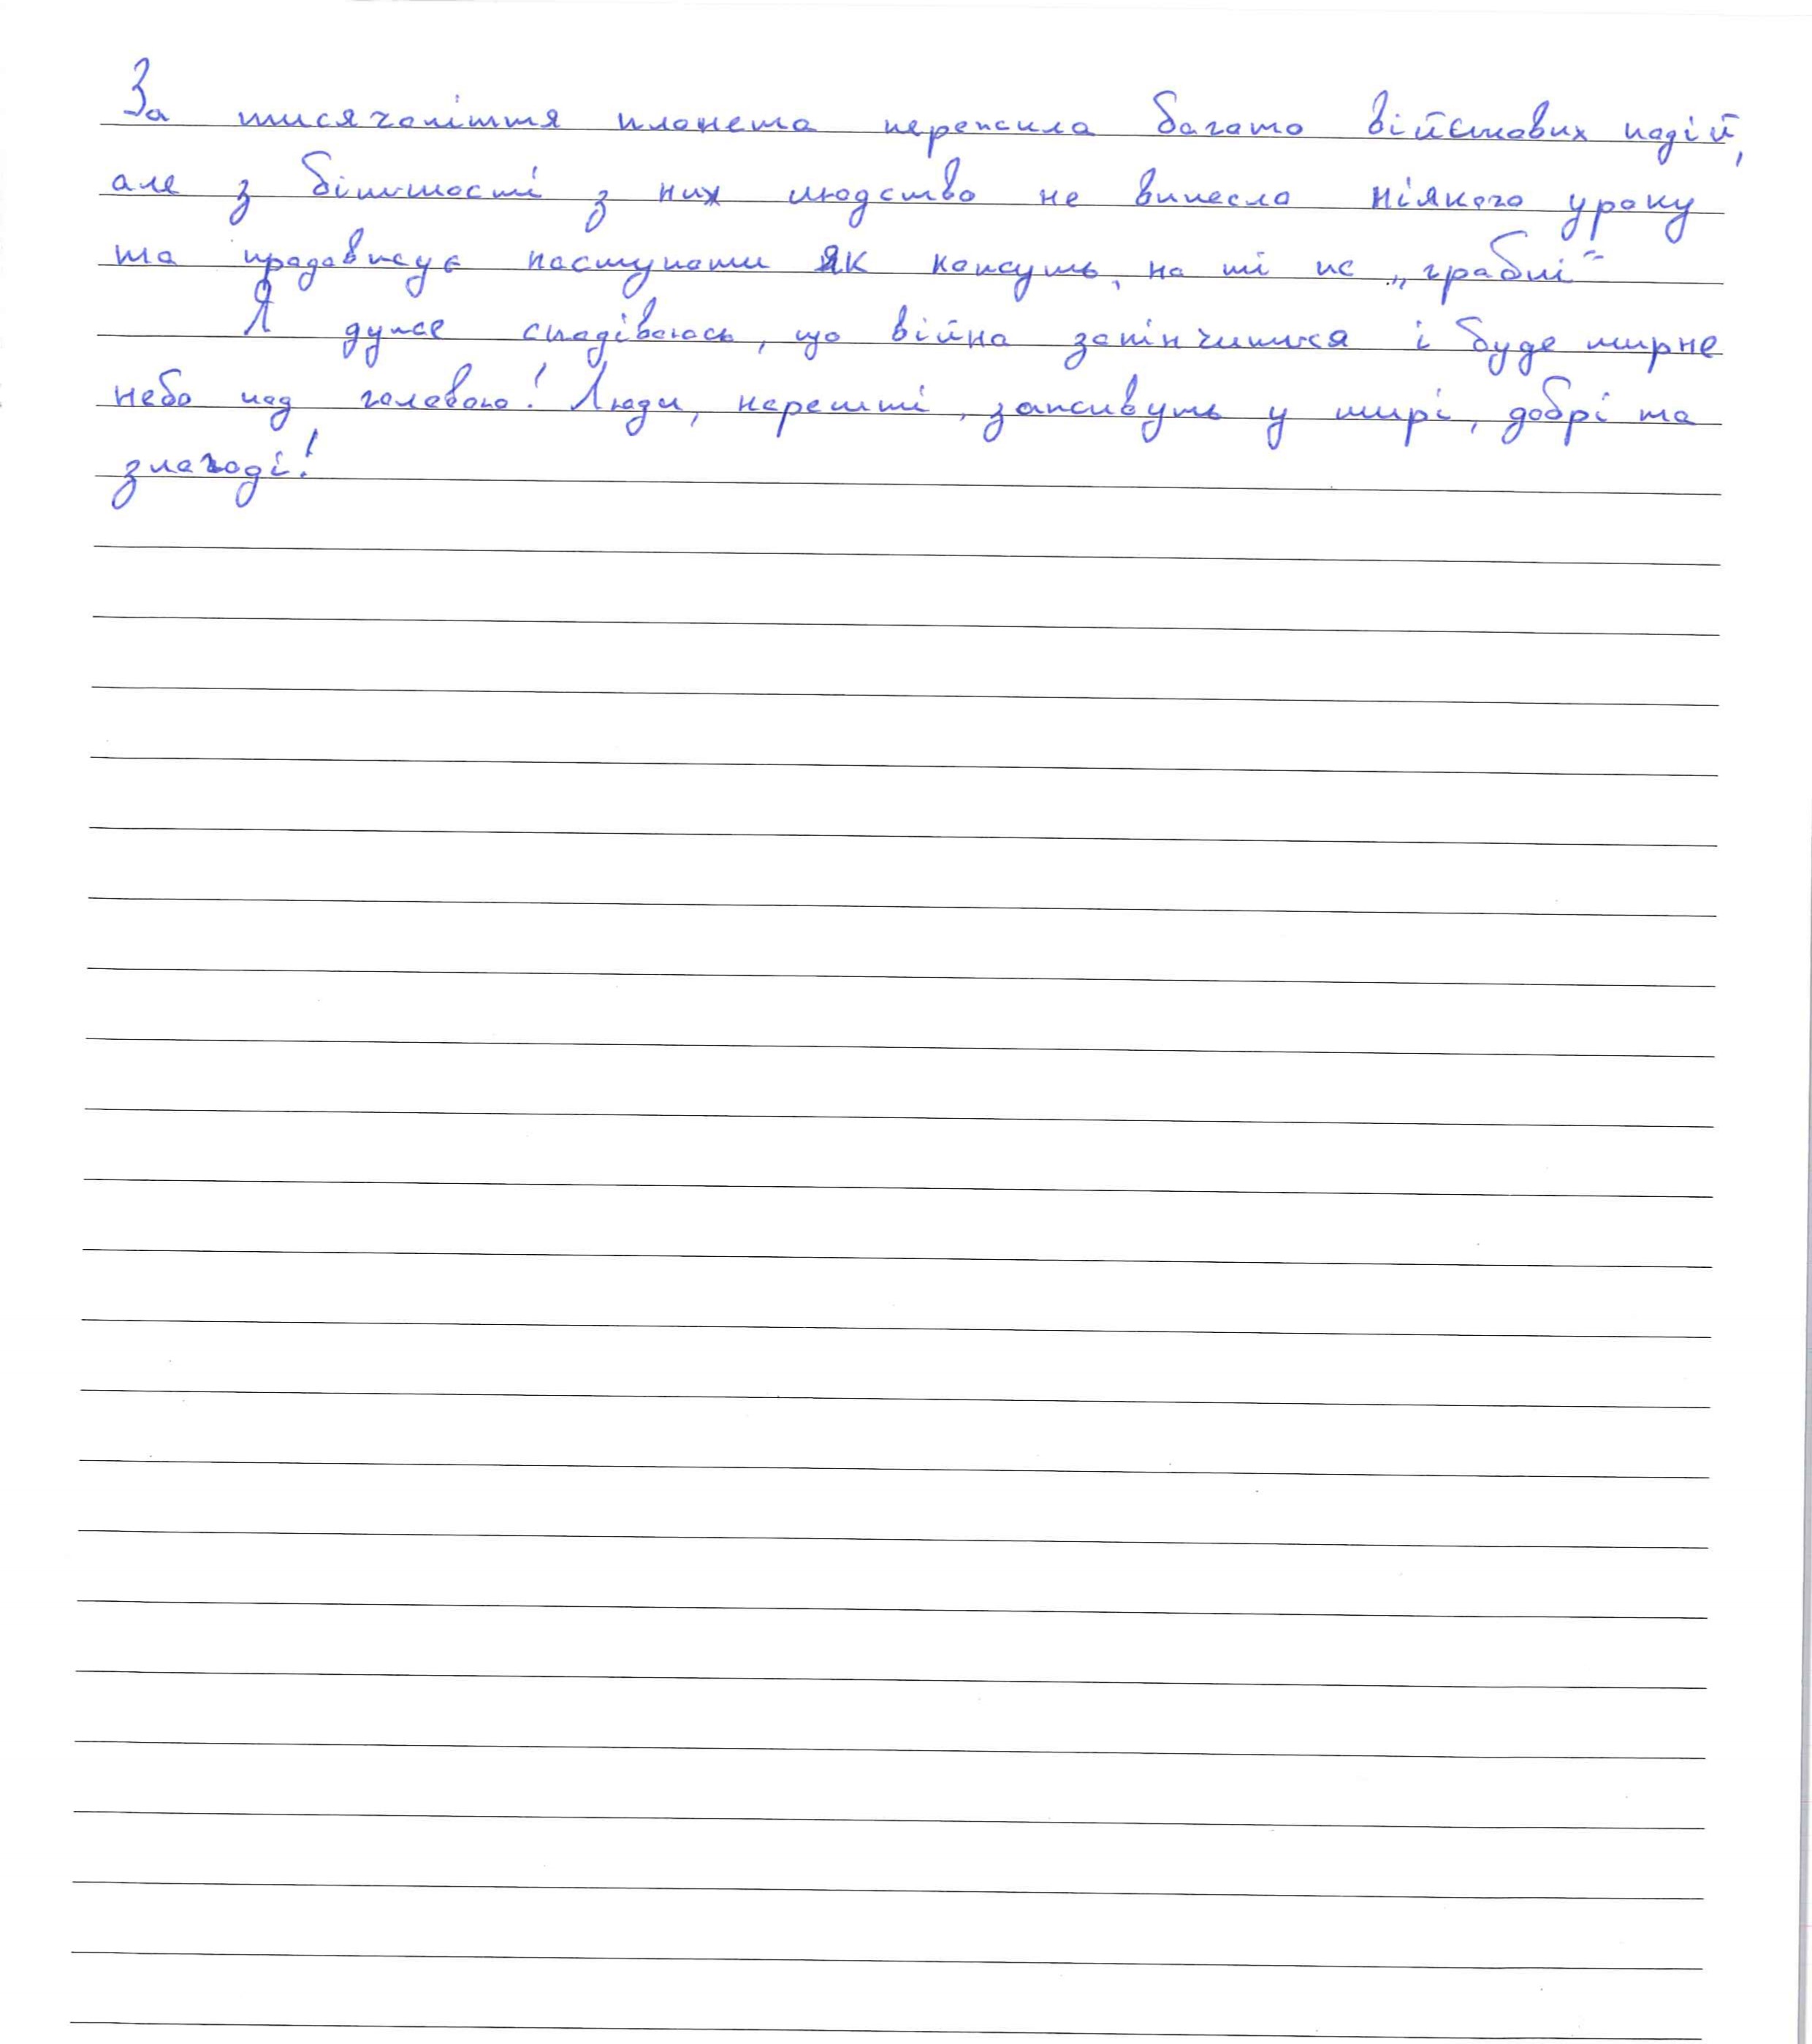 За тисячоліття планета пережила багато військових подій,
але з більшості з них людство не винесло ніякого уроку
та продовжує наступати як кажуть, на ті ж „граблі“
Я дуже сподіваюсь, що війна закінчиться і буде мирне
небо над головою! Люди, нарешті, заживуть у мирі, добрі та
злагоді!